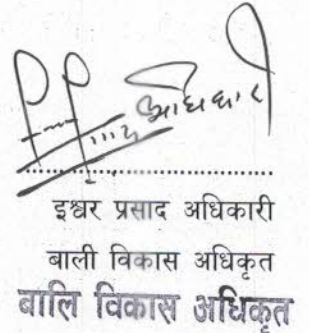 अधिकारी
इश्वर प्रसाद अधिकारी
बाली विकास अधिकृत
बालि विकास अधिकृत